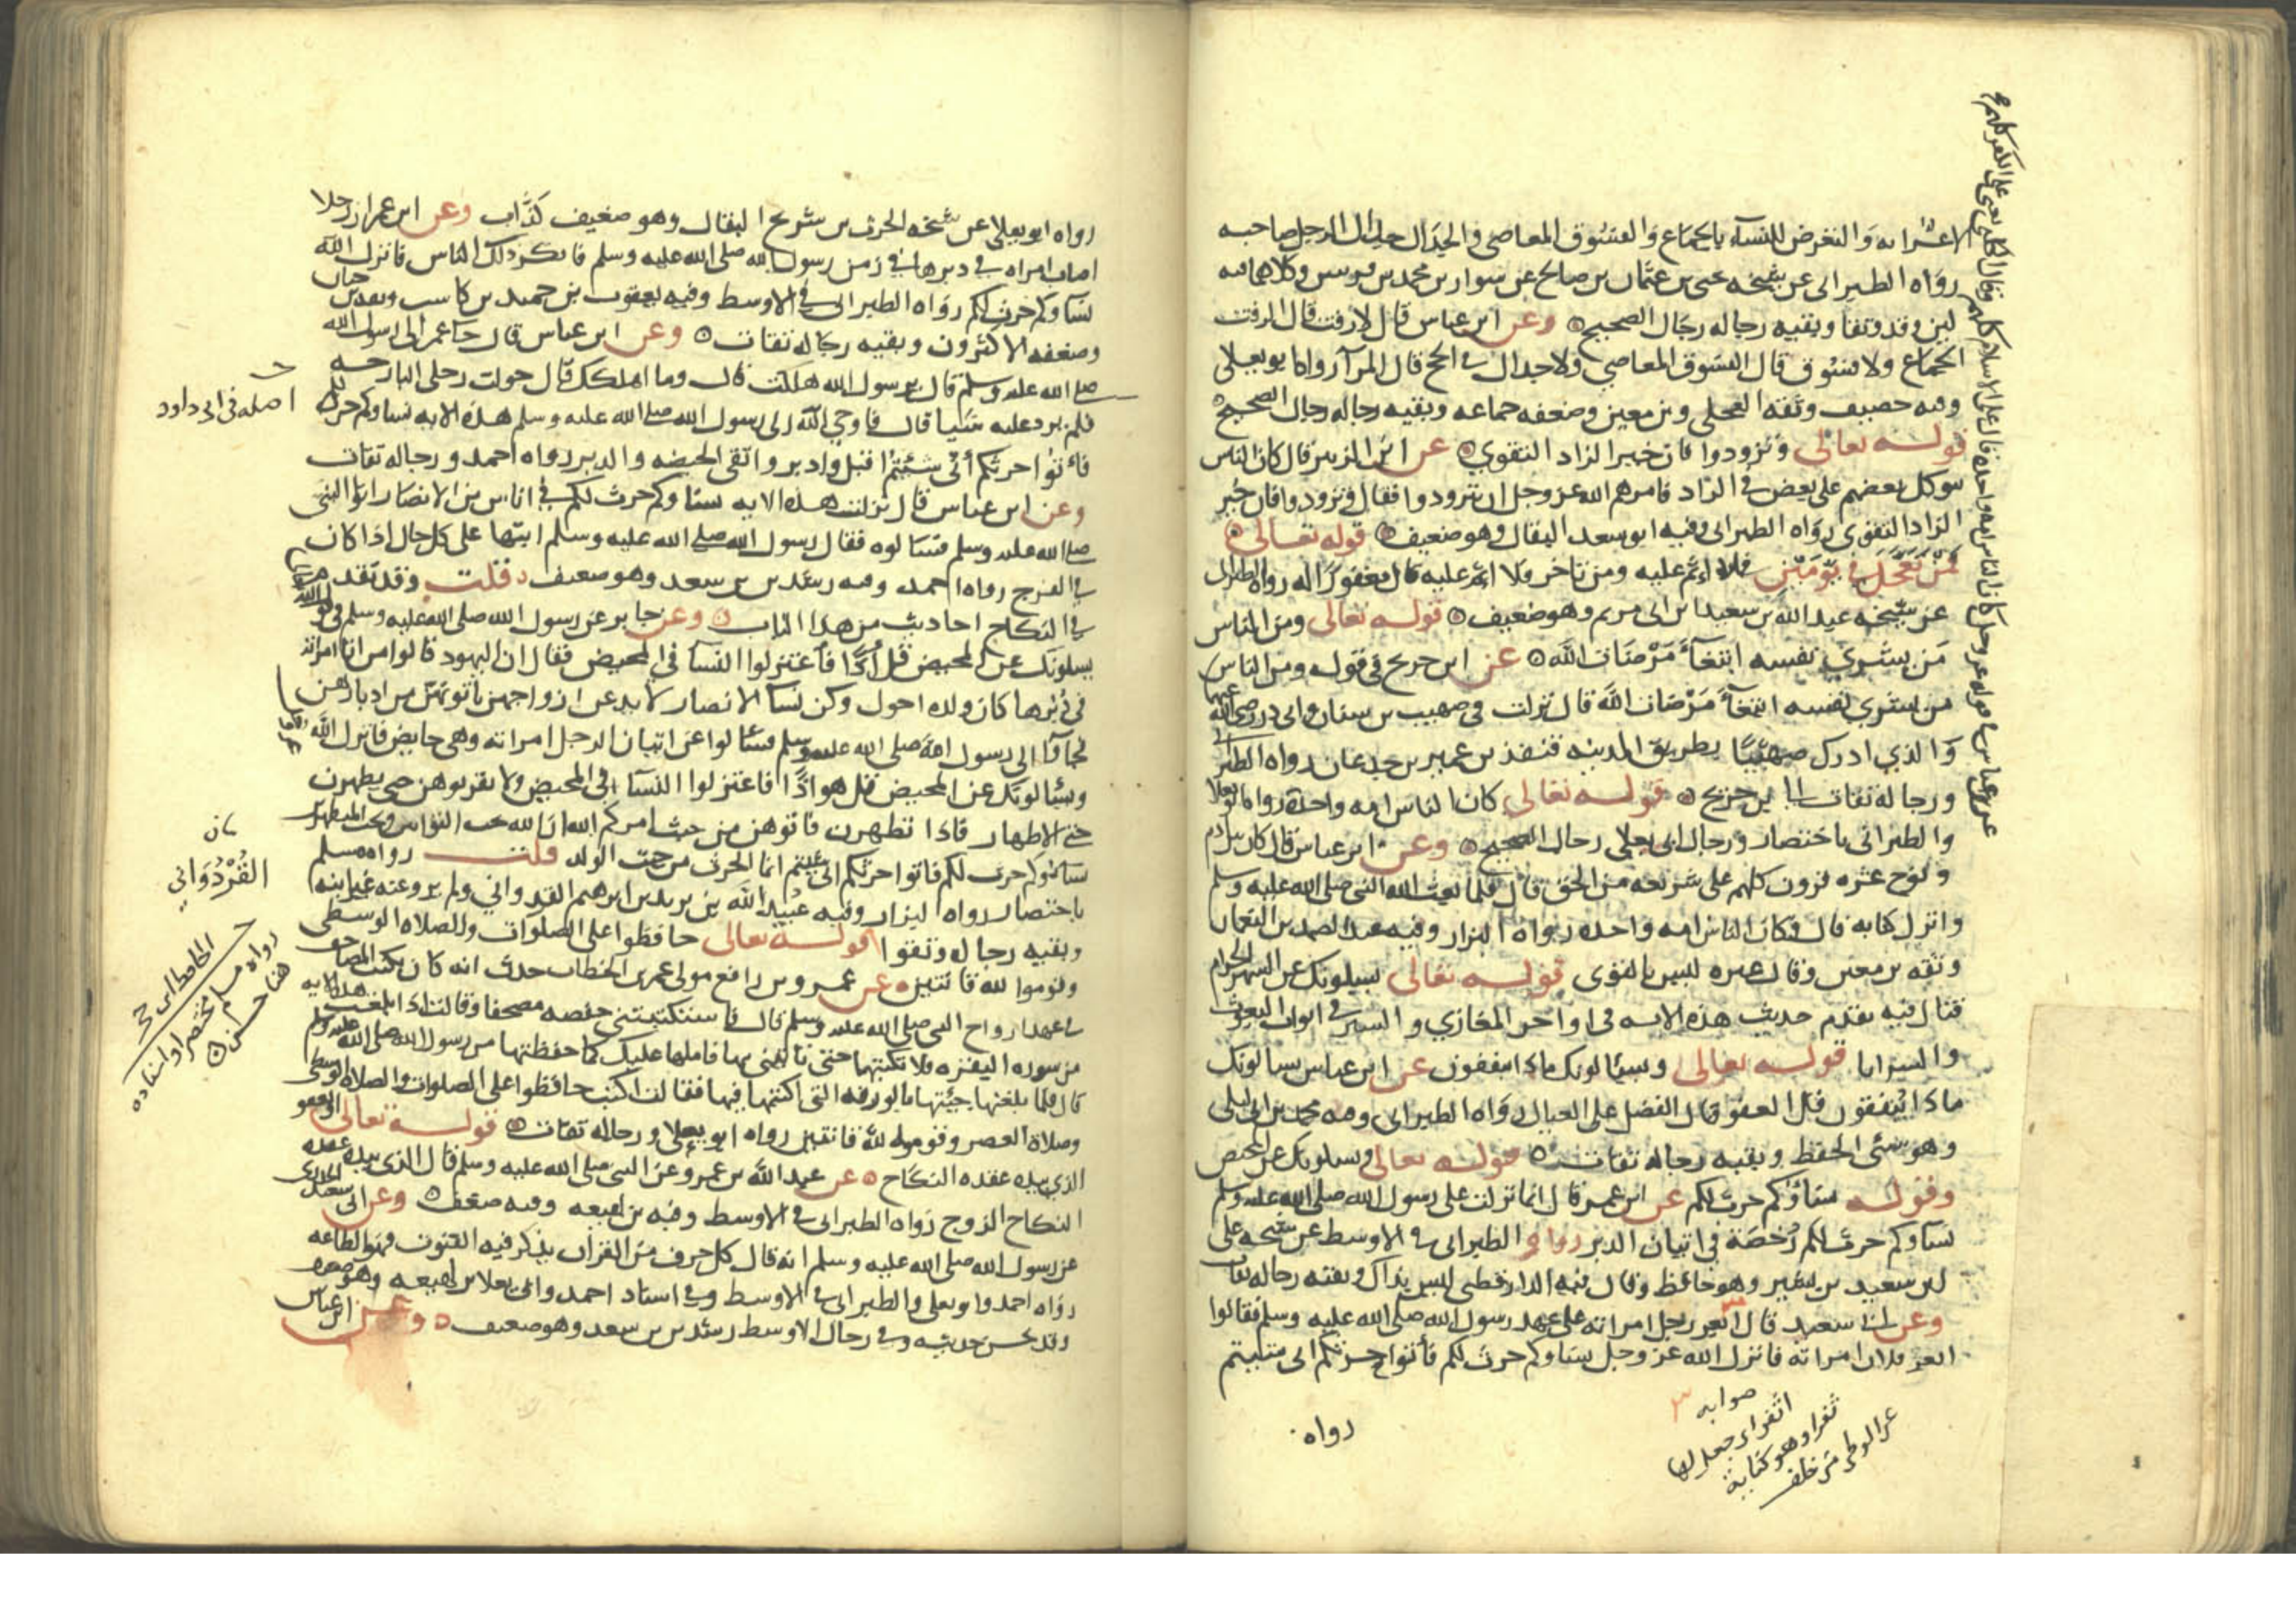 الاعرابه والتعرض للنساء بالجماع والفسوق المعاصي والجدال جدال الرجل صاحبه
رواه الطبراني عن شيخه يحيى بن عثمان بن صالح عن سوار بن محمد بن قريش وكلاهما فيه
لين وقد وثقا وبقيه رجاله رجال الصحيح وعن ابن عباس قال لا رفث قال الرفث
الجماع ولا فسوق قال الفسوق المعاصي ولا جدال في الحج قال المرآ رواه ابو يعلى
وفيه خصيف وثقه العجلي وبن معين وضعفه جماعه وبقيه رجاله رجال الصحيح
قوله تعالى وتزودوا فان خير الزاد التقوى عن ابن الزبير قال كان الناس
يتوكل بعضهم على بعض في الزاد فامرهم الله عز وجل ان يتزودوا فقال وتزودوا فان خير
الزاد التقوى رواه الطبراني وفيه ابو سعد البقال وهو ضعيف قوله تعالى
فمن تعجل في يومين فلا اثم عليه ومن تاخر فلا اثم عليه قال مغفورا له رواه الطبراني
عن شيخه عبد الله بن سعيد بن ابي مريم وهو ضعيف قوله تعالى ومن الناس
من يشري نفسه ابتغآء مرضات الله عن ابن جريج في قوله ومن الناس
من يشري نفسه ابتغآء مرضات الله قال نزلت في صهيب بن سنان وابي ذر رضي الله عنهما
والذي ادرك صهيبا بطريق المدينه قنفذ بن عمير بن جدعان رواه الطبراني
ورجاله ثقات الى بن جريج قوله تعالى كان الناس امه واحدة رواه ابو يعلا
والطبراني باختصار ورجال ابي يعلى رجال الصحيح وعن ابن عباس قال كان بين ادم
ونوح عشره قرون كلهم على شريعه من الحق قال فلما بعث الله النبي صلى الله عليه وسلم
وانزل كتابه قال وكان الناس امه واحده رواه البزار وفيه عبد الصمد بن النعمان
وثقه بن معين وقال غيره ليس بالقوى قوله تعالى يسيلونك عن الشهر الحرام
قتال فيه تقدم حديث هذه الايه في اواخر المغازي والسير في ابواب البعوث
والسرايا قوله تعالى ويسئالونك ماذا ينفقون عن ابن عباس يسالونك
ماذا ينفقون قل العفو قال الفضل على العيال رواه الطبراني وفيه محمد بن ابي ليلى
وهو سئ الحفظ وبقيه رجاله ثقات قوله تعالى ويسلونك عن المحيض
وقوله نساؤكم حرث لكم عن ابن عمر قال انما نزلت على رسول الله صلى الله عليه وسلم
نساوكم حرث لكم رخصة في اتيان الدبر رواه الطبراني في الاوسط عن شيخه علي
بن سعيد بن بشير وهو حافظ وقال فيه الدارقطني ليس بذاك وبقيته رجاله ثقات
وعن ابي سعيد قال اثفر رجل امراته على عهد رسول الله صلى الله عليه وسلم فقالوا
اثفر فلان امراته فانزل الله عز وجل نساوكم حرث لكم فأتوا حرثكم انى شئتم
رواه
صوابه
اثفر اي جعل لها
ثفرا وهو كناية
عن الوطي من خلف
رواه ابو يعلى عن شيخه الحرث بن شريح البقال وهو ضعيف كذاب وعن ابن عمر ان رجلا
اصاب امراه في دبرها في زمن رسول الله صلى الله عليه وسلم فانكر ذلك الناس فانزل الله
نساوكم حرث لكم رواه الطبراني في الاوسط وفيه يعقوب بن حميد بن كاسب وثقه بن حبان
وضعفه الاكثرون وبقيه رجاله ثقات وعن ابن عباس قال جا عمر الى رسول الله
صلى الله عليه وسلم قال يرسول الله هلكت قال وما اهلكك قال حولت رحلي البارحه
فلم يرد عليه شيا قال فاوحي الله الى رسول الله صلى الله عليه وسلم هذه الايه نساوكم حرث لكم
فأتوا حرثكم أنى شئتم اقبل وادبر واتقى الحيضه والدبر رواه احمد ورجاله ثقات
وعن ابن عباس قال نزلت هذه الايه نساوكم حرث لكم في اناس من الانصار اتوا النبي
صلى الله عليه وسلم فسالوه فقال رسول الله صلى الله عليه وسلم ايتها على كل حال اذا كان
في الفرج رواه احمد وفيه رشدين بن سعد وهو ضعيف قلت وقد تقدم
في النكاح احاديث من هذا الباب وعن جابر عن رسول الله صلى الله عليه وسلم في قول الله
يسلونك عن المحيض قل هو أذا فاعتزلوا النسآ في المحيض فقال ان اليهود قالوا من اتا امراته
في دبرها كان ولده احول وكن نسآ الانصار لا يدعن ازواجهن ياتونهن من ادبارهن
فجاوا الى رسول الله صلى الله عليه وسلم فسئالوا عن اتيان الرجل امراته وهي حايض فانزل الله
ويسئالونك عن المحيض قل هو اذا فاعتزلوا النسآ في المحيض ولا تقربوهن حتى يطهرن
الاطهار فاذا تطهرن فاتوهن من حيث امركم الله ان الله يحب التوابين ويحب المتطهرين
نساؤكم حرث لكم فاتوا حرثكم انى شيتم انما الحرث من حيث الولد قلت رواه مسلم
باختصار رواه البزار وفيه عبيد الله بن يزيد بن ابرهيم القردواني ولم يرو عنه غير ابنه
وبقيه رجاله وثقوا قوله تعالى حافظوا على الصلوات والصلاه الوسطى
وقوموا لله قانتين عن عمرو بن رافع مولى عمر بن الخطاب حدث انه كان يكتب المصاحف
في عهد ازواج النبي صلى الله عليه وسلم قال فاستكتبتني حفصه مصحفا وقالت اذا بلغت هذه الايه
من سوره البقره فلا تكتبها حتى تاتيني بها فاملها عليك كما حفظتها من رسول الله صلى الله عليه وسلم
قال فلما بلغتها جيتها بالورقه التي اكتبها فيها فقالت اكتب حافظوا على الصلوات والصلاه الوسطى
وصلاة العصر وقوموا لله قانتين رواه ابو يعلى ورجاله ثقات قوله تعالى او يعفو
الذي بيده عقده النكاح عن عبد الله بن عمرو عن النبي صلى الله عليه وسلم قال الذي بيده عقده
النكاح الزوج رواه الطبراني في الاوسط وفيه بن لهيعه وفيه ضعف وعن ابي سعيد الخدري
عن رسول الله صلى الله عليه وسلم انه قال كل حرف من القران يذكر فيه القنوت فهو الطاعه
رواه احمد وابو يعلى والطبراني في الاوسط وفي اسناد احمد وابي يعلا بن لهيعه وهو ضعيف
وقد يحسن حديثه وفي رجال الاوسط رشدين بن سعد وهو ضعيف وعن ابن عباس
اصله في ابي داود
القردواني
رواه مسلم مختصرا واسناده
هنا حسن